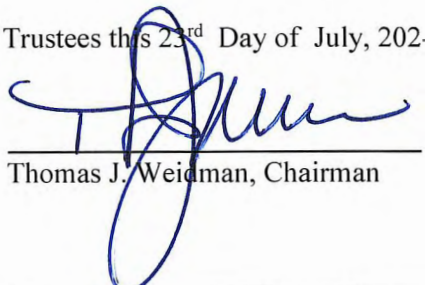 Trustees this 23rd Day of July, 202
Thomas J. Weidman, Chairman